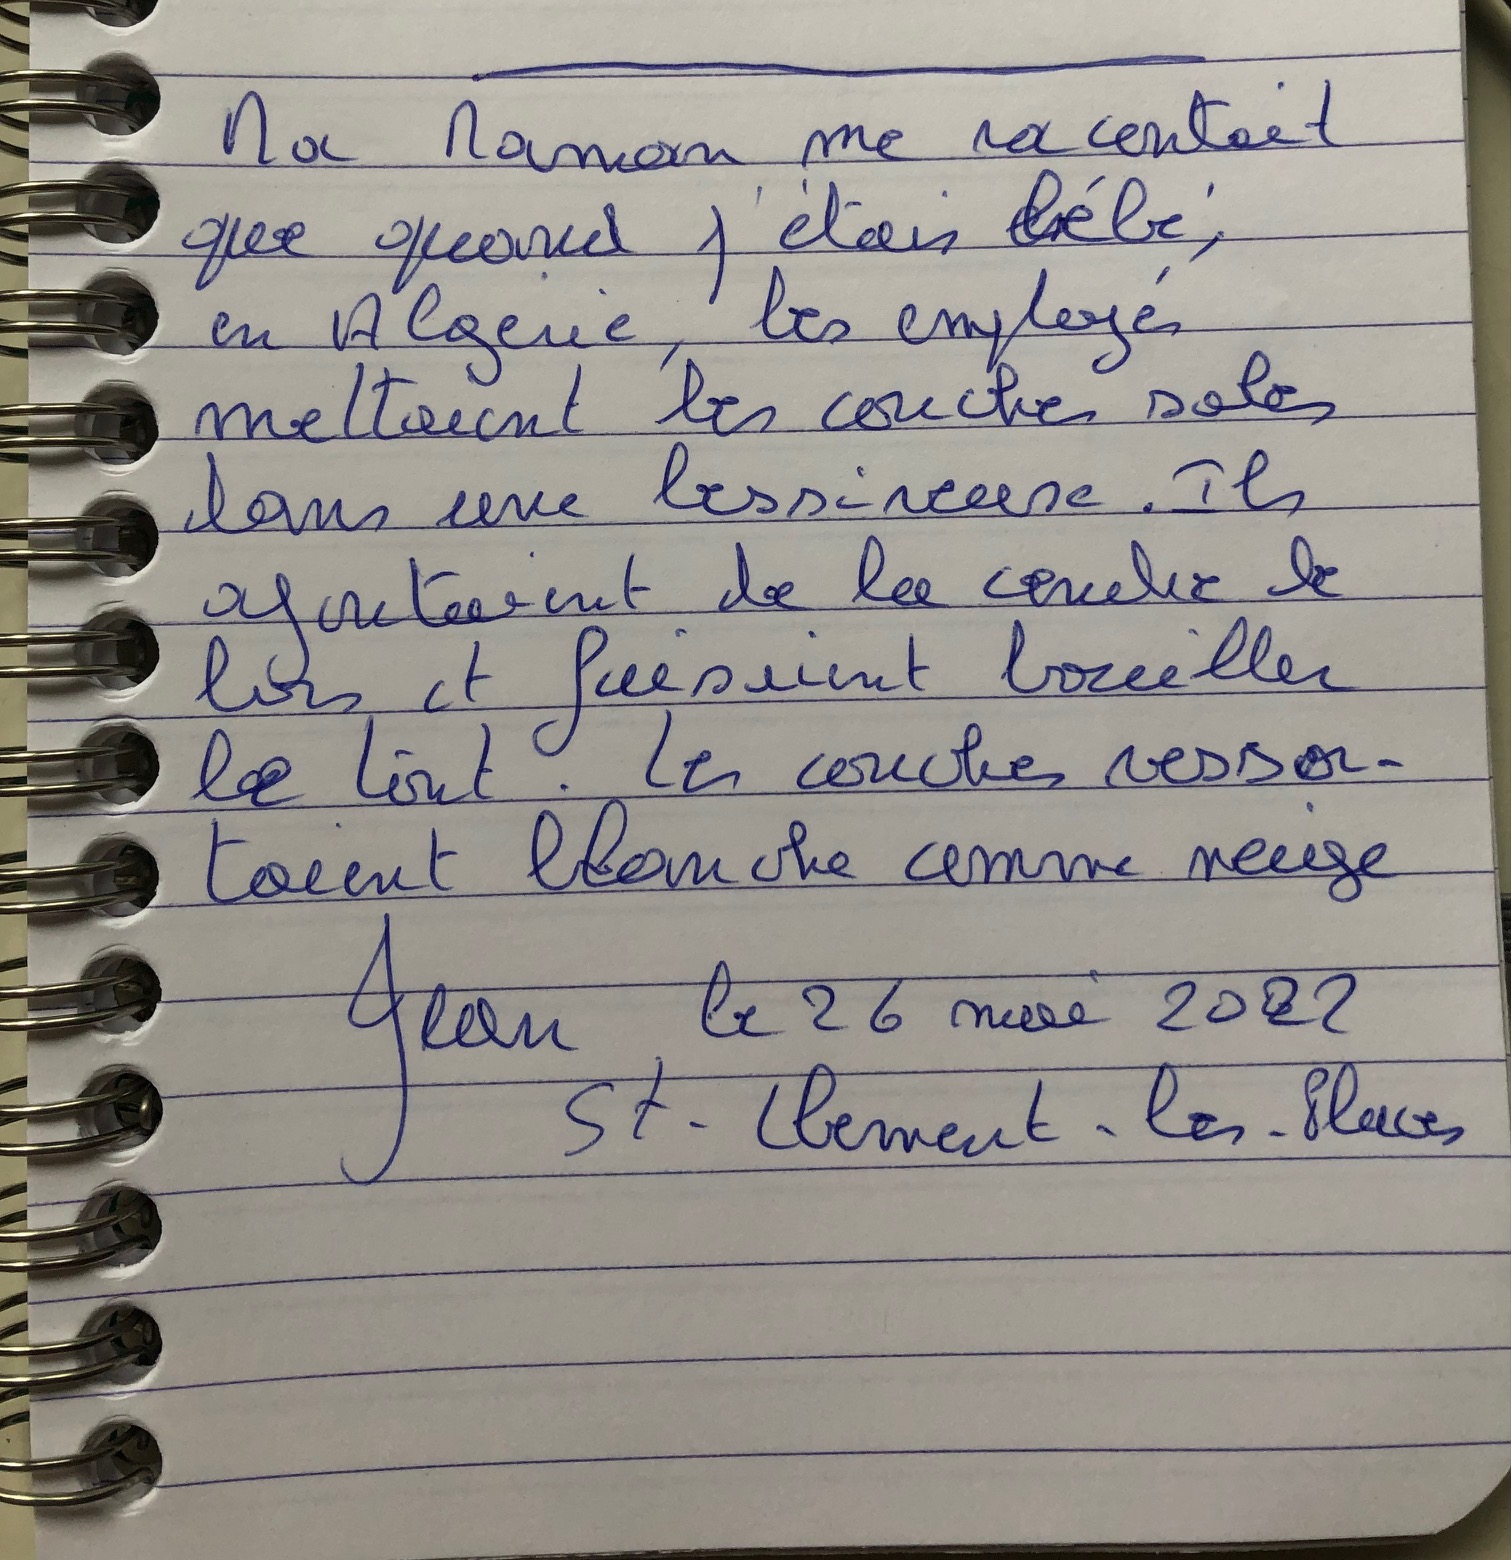 Ma Maman me racontait
que quand j'étais bébé,
en Algérie, les employés
mettaient les couches sales
dans une lessiveuse. Ils
ajoutaient de la cendre de
bois et faisaient bouillir
le tout. Les couches ressor-
taient blanche comme neige
Jean le 26 mai 2022
St-Clement-les-Places